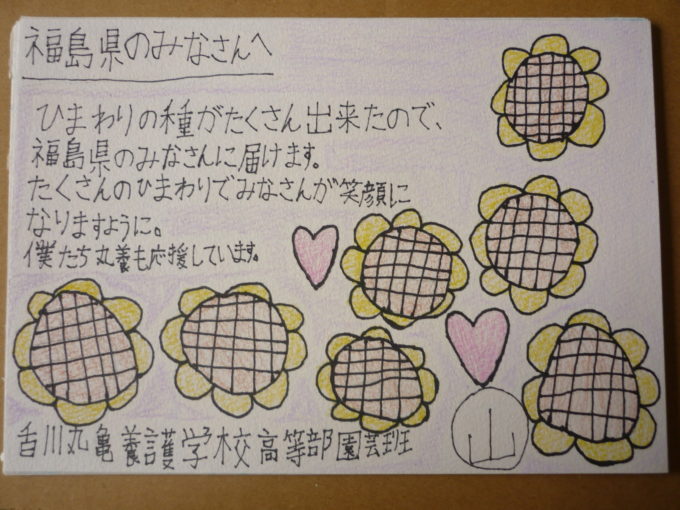 福島県のみなさんへ
ひまわりの種がたくさん出来たので、
福島県のみなさんに届けます。
たくさんのひまわりでみなさんが笑顔に
なりますように。
僕たち丸養も応援しています。
香川丸亀養護学校高等部園芸班
山